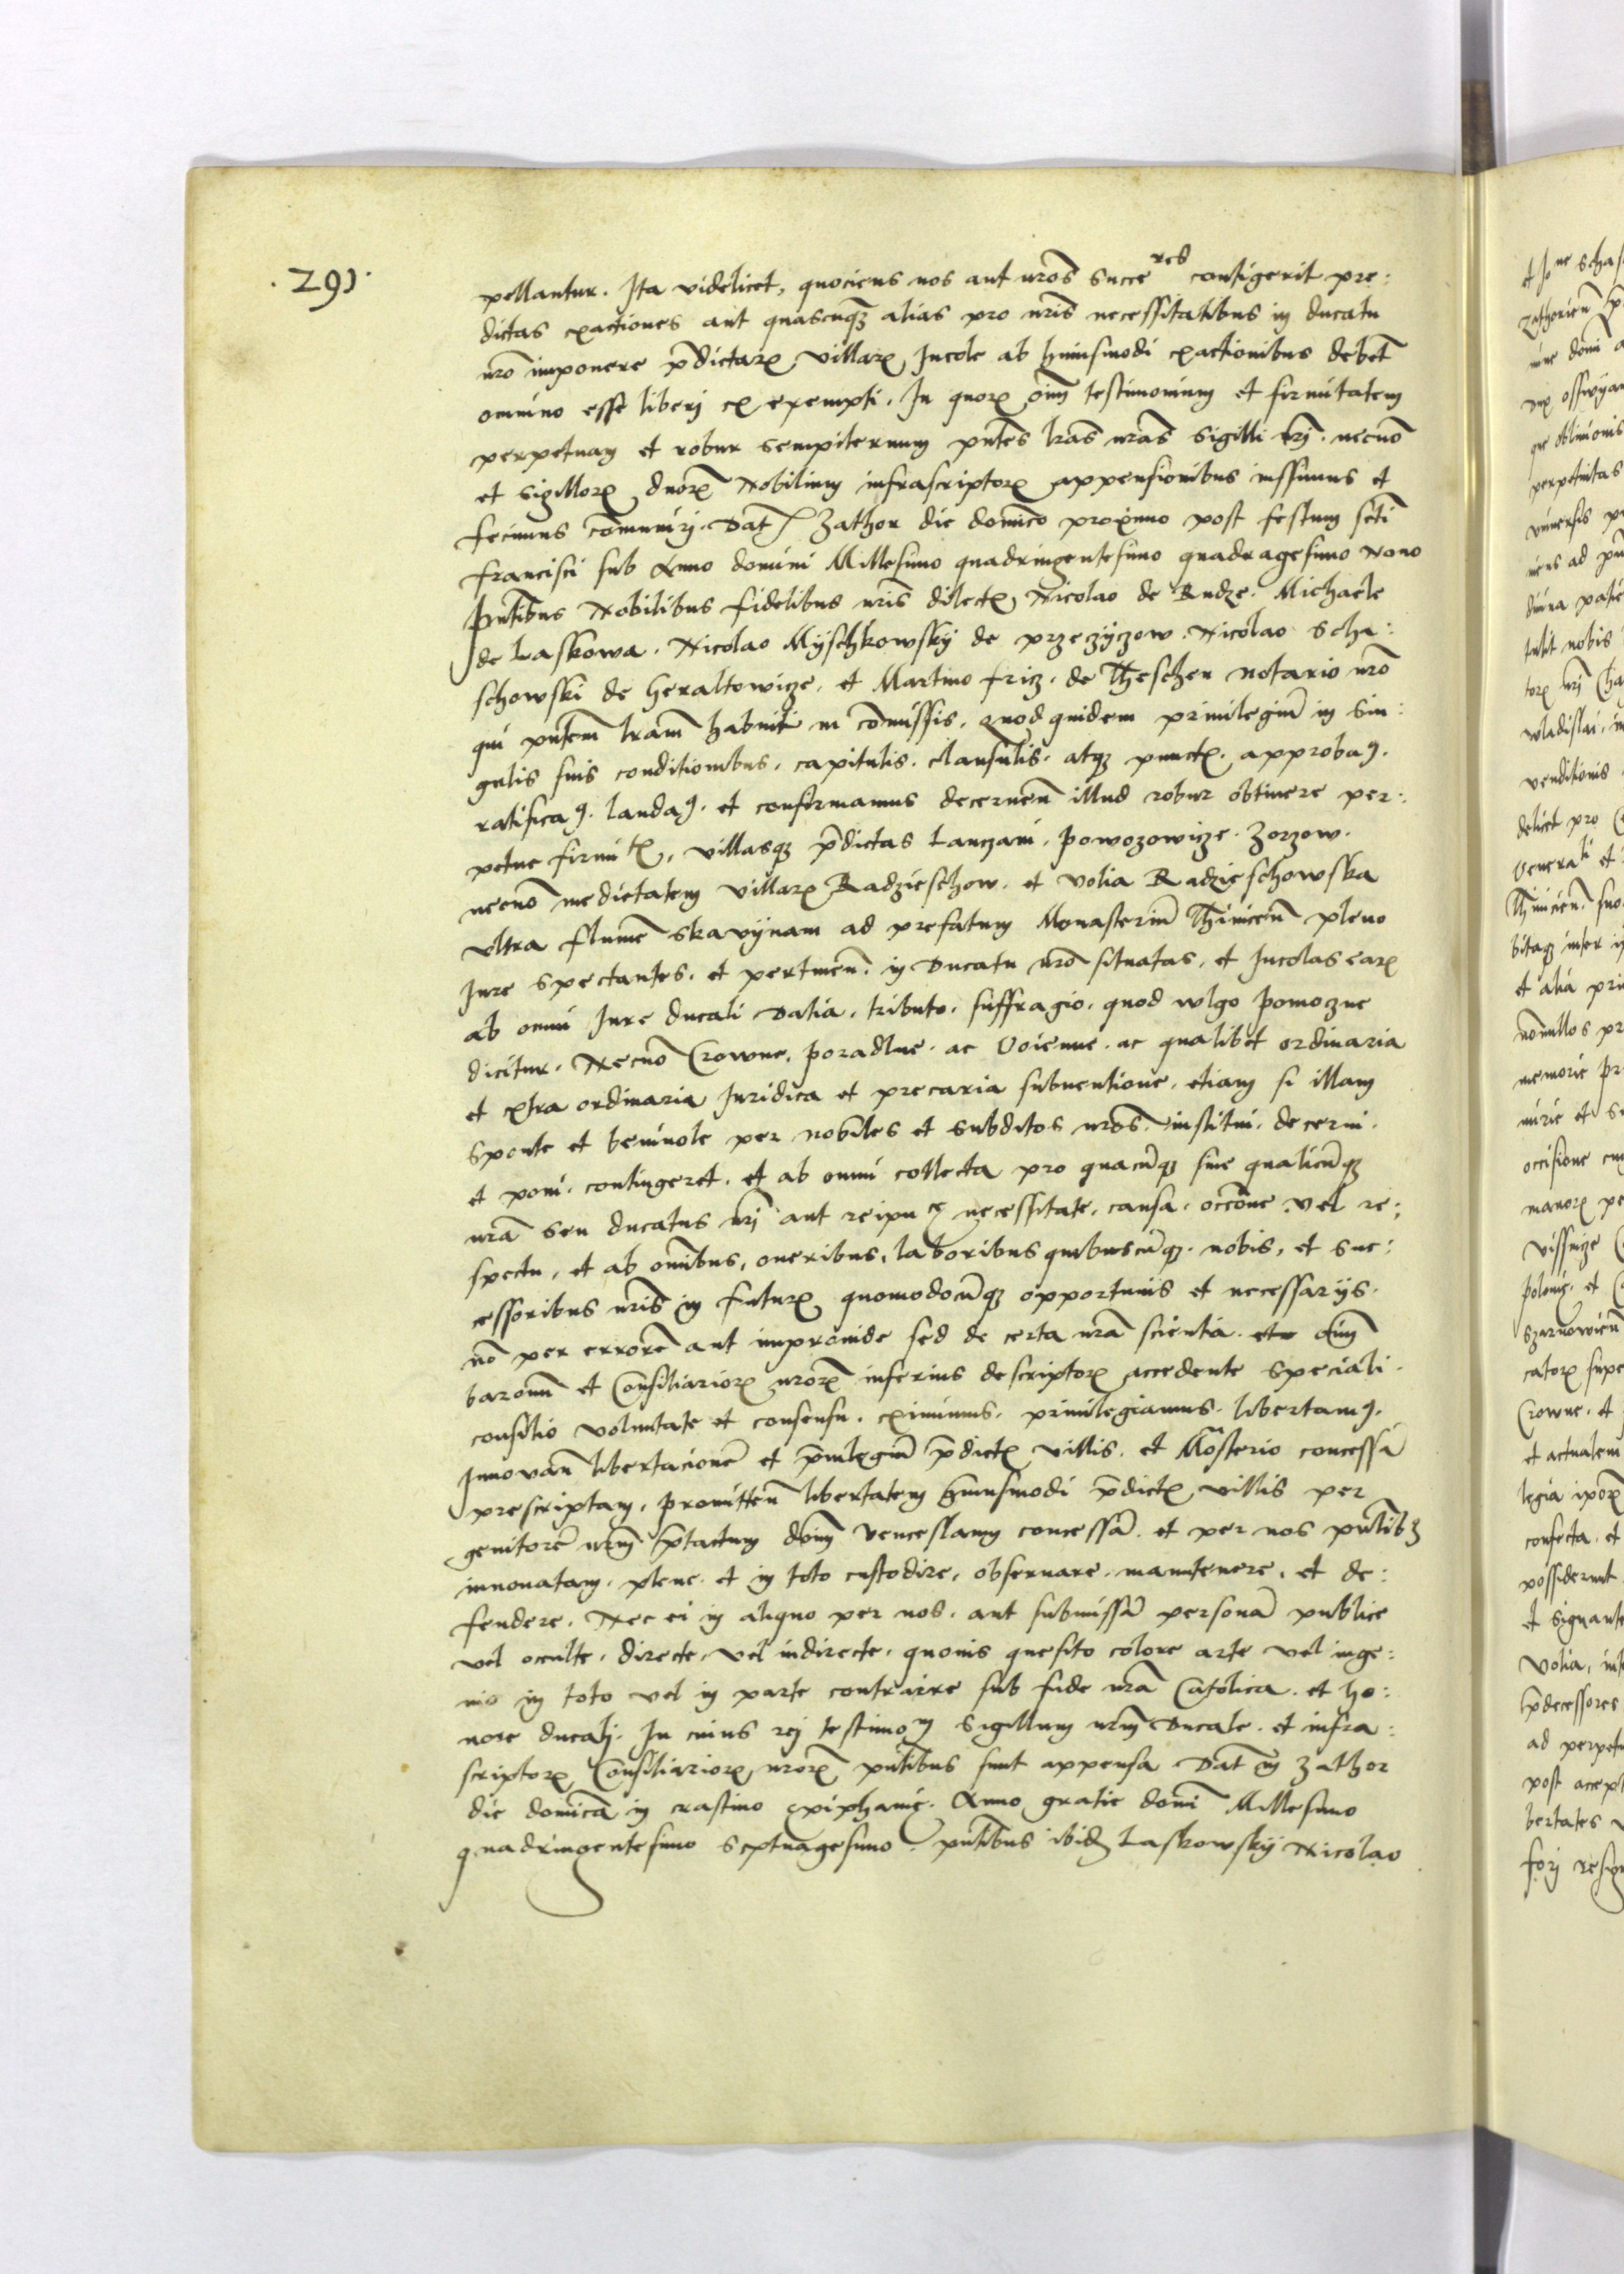 .291.
pellantur. Ita videlicet, quociens nos aut nr̃os succeres contigerit pre:
dictas exactiones aut quascuqȝ alias pro nr̃is necessitatibus in ducatu
nr̃o imponere p̃dictarꝝ villarꝝ Incole ab huiusmodi exactionibus debet̃
omnino esse liberj et exempti. In quorꝝ oĩm testimonium et firmitatem
perpetuam et robur sempiternum pñtes lr̃as nr̃as Sigilli nr̃j. necnõ
et Sigillorꝝ duorꝝ Nobilium infrascriptorꝝ appensionibus iussimus et
fecimus cõmunirj. Dat̃ Zathor die domico proximo post festum scti
francisci sub Anno domini Millesimo quadringentesimo quadragesimo Nono
Pñtibus Nobilibus fidelibus nr̃is dilectꝭ Nicolao de Rudze. Michaele
de Laskowa. Nicolao Myschkowsky de przeczyczow. Nicolao Scha:
schowski de Geraltowicze, et Martino fricz. de Theschen notario nr̃o
qui pñtem lr̃am habuit in cõmissis. Quod quidem priuilegiũ in sin:
gulis suis conditionibus, capitulis. clausulis. atqȝ punctꝭ. approbaꝯ.
ratificaꝯ. laudaꝯ. et confirmamus decerneñ illud robur obtinere per:
petue firmitꝭ, villasqȝ p̃dictas Lanczani, Powozowicze. Zorzow.
necnõ medietatem villarꝝ Radzieschow. et volia Radzieschowska
vltra flumẽ Skavynam ad prefatum Monasteriũ Thiniceñ pleno
Iure spectantes. et pertineñ. in Ducatu nr̃o situatas, et Incolas earꝝ
ab omni Iure ducali Datia, tributo. suffragio. quod wlgo pomoczne
dicitur. Necnõ Crowne, poradlne. ac Voienne. ac qualibet ordinaria
et extra ordinaria Iuridica et precaria subuentione, etiam si illam
Sponte et beniuole per nobiles et Subditos nr̃os. institui. decerni.
et poni. contingeret. et ab omni collecta pro quacũqȝ siue qualicũqȝ
nr̃a seu ducatus nr̃j aut reipuce necessitate, causa. occõne vel re:
spectu, et ab omĩbus, oneribus, laboribus quibuscũqȝ. nobis, et suc:
cessoribus nr̃is in futurꝝ quomodocũqȝ opportunis et necessarijs.
nõ per errorẽ aut improuide sed de certa nr̃a scientia. oĩm
baronũ et Consiliariorꝝ nr̃orꝝ inferius descriptorꝝ accedente Speciali.
consilio voluntate et consensu. eximimus. priuilegiamus. libertamꝯ.
Innouañ libertacionẽ et p̃uilegiũ p̃dictꝭ villis. et Mõsterio concessã
prescriptam. promitteñ libertatem hmõi p̃dictꝭ villis per
genitorẽ nr̃m p̃tactum dõm Venceslaum concessã. et per nos pñtibȝ
innouatam. plene. et in toto custodire, obseruare. manutenere, et de:
fendere. Nec ei in aliquo per nos. aut submissã personã publice
vel oculte. directe, vel indirecte. quouis quesito colore arte vel inge:
nio in toto vel in parte contraire sub fide nr̃a Catolica. et ho:
nore ducalj. In cuius rej testimoм Sigillum nr̃m Ducale. et infra:
scriptorꝝ Consiliariorꝝ nr̃orꝝ pñtibus sunt appensa Dat̃ in Zathor
die domicã in crastino Epiphanię. Anno gratie domi Millesimo
quadringentesimo Septuagesimo. pñtibus ibidꝫ Laskowskÿ Nicolao